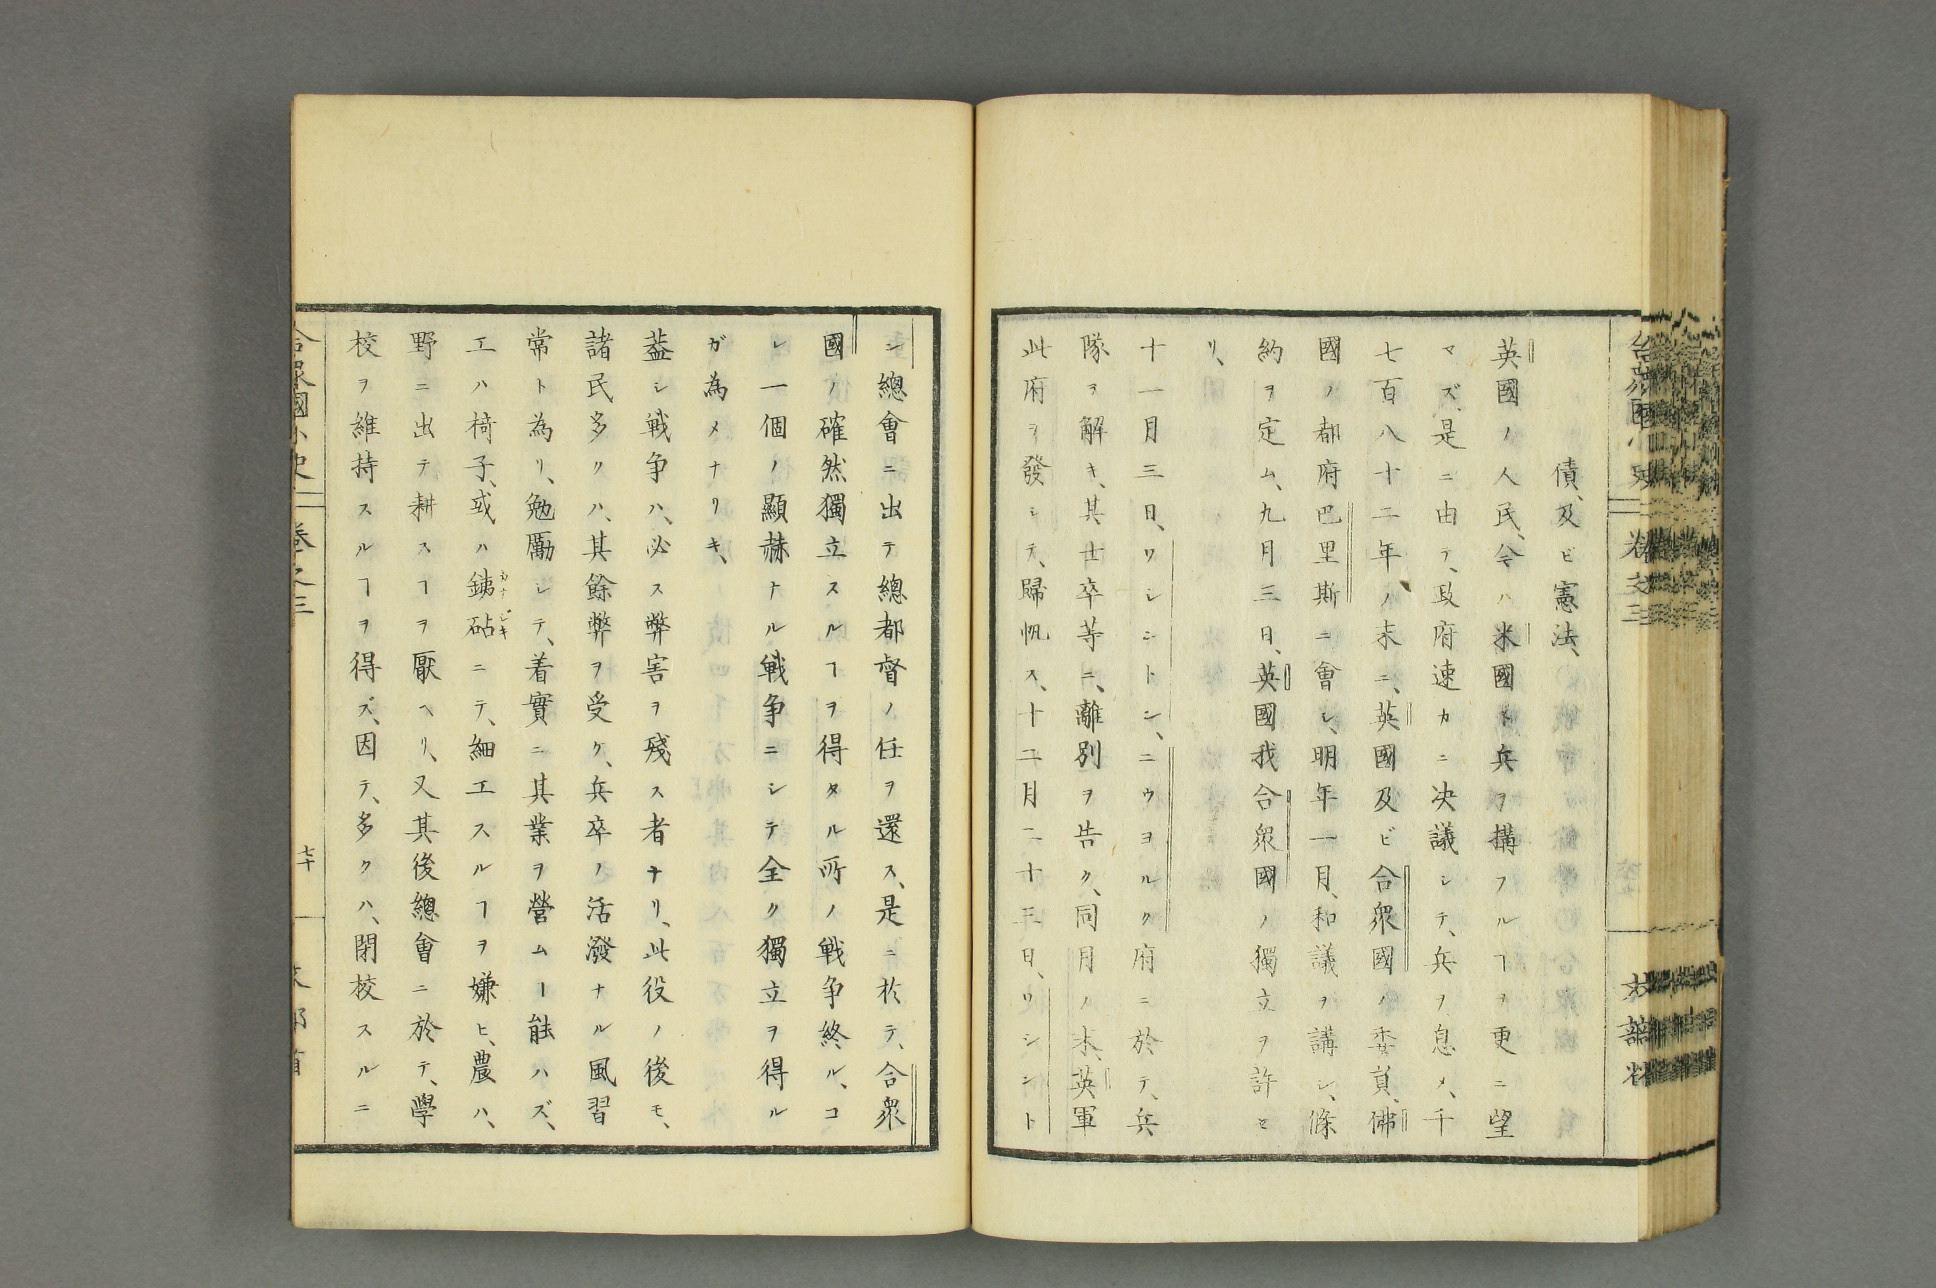 合衆國小史
卷之三
文部省
債、及ビ憲法、
英國ノ人民、今ハ米國ト兵ヲ搆フルヿヲ更ニ望
マズ、是ニ由テ、政府速カニ決議シテ、兵ヲ息メ、千
七百八十二年ノ末ニ、英國及ビ合衆國ノ委員、佛
國ノ都府巴里斯ニ會シ、明年一月、和議ヲ講シ、條
約ヲ定ム、九月三日、英國我合衆國ノ獨立ヲ許セ
リ、
十一月三日、ワシントン、ニウヨルク府ニ於テ、兵
隊ヲ解キ、其士卒等ニ、離別ヲ告ク、同月ノ末、英軍
此府ヲ發シテ、歸帆ス、十二月二十三日、ワシント
ン總會ニ出テ總都督ノ任ヲ還ス、是ニ於テ、合衆
國ノ確然獨立スルヿヲ得タル所ノ戦争終ル、コ
レ一個ノ顯赫ナル戦争ニシテ全ク獨立ヲ得ル
ガ為メナリキ、
葢シ戦争ハ、必ス弊害ヲ殘ス者ナリ、此役ノ後モ、
諸民多クハ、其餘弊ヲ受ク、兵卒ノ活潑ナル風習
常ト為リ、勉勵シテ、着實ニ其業ヲ營ムヿ能ハズ、
工ハ椅子、或ハ銕砧ニテ、細工スルヿヲ嫌ヒ、農ハ、
カナシキ
野ニ出テ耕スヿヲ厭ヘリ、又其後總會ニ於テ、學
校ヲ維持スルヿヲ得ズ、因テ、多クハ、閉校スルニ
合衆國小史
卷之三
七十
文部省